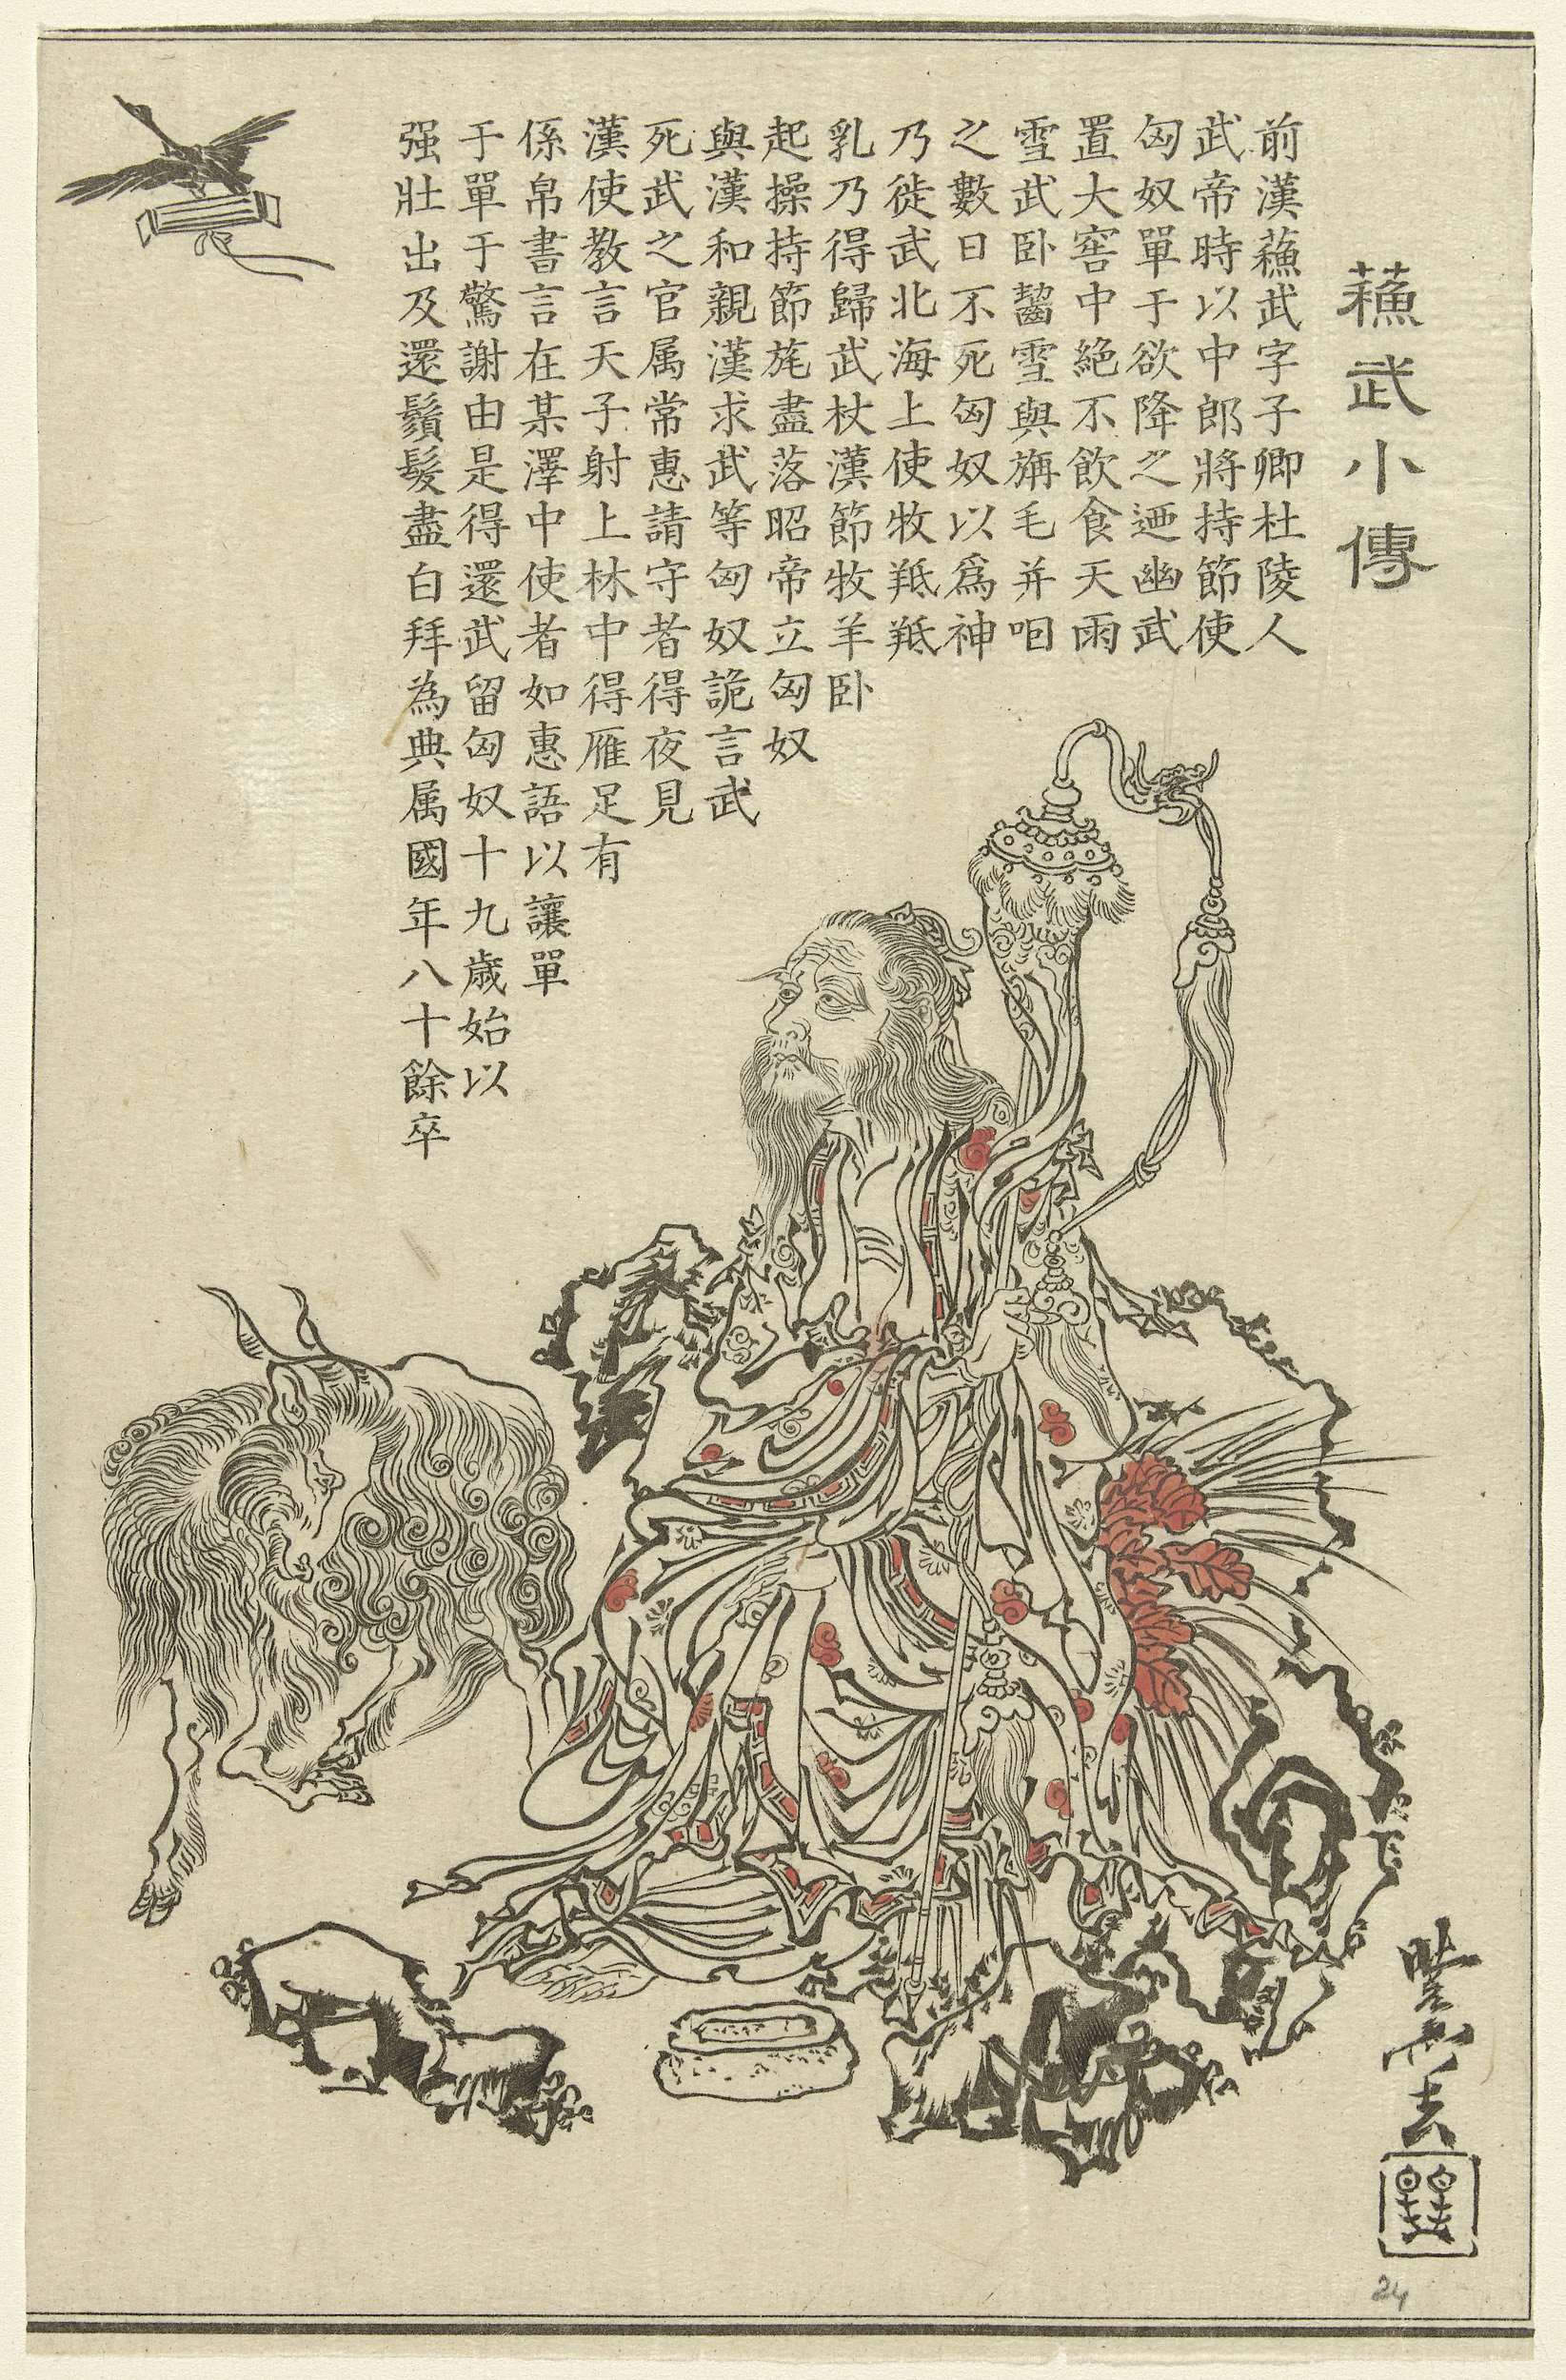 蘓武小傳
前漢蘓武字子卿杜陵人
武帝時以中郎將持節使
匈奴單于欲降之迺幽武
置大窖中絶不飲食天雨
雪武卧齧雪與旃毛并咽
之數日不死匈奴以爲神
乃徙武北海上使牧羝羝
乳乃得歸武杖漢節牧羊卧
起操持節旄盡落昭帝立匈奴
與漢和親漢求武等匈奴詭言武
死武之官属常惠請守者得夜見
漢使教言天子射上林中得雁足有
係帛書言在某澤中使者如惠語以讓單
于單于驚謝由是得還武留匈奴十九歲始以
强壯出及還鬚髮盡白拜為典属國年八十餘卒
24